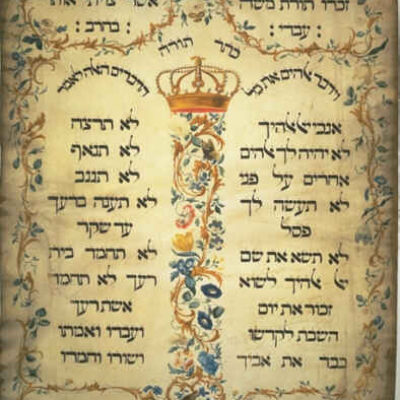 זכרו תורת משה
אשר צויתי את
: עבדי :
: בהרב :
כתר תורה
וידבר אהים את כל
הדברים האלה לאמר
אנכי יי אלהיך
לא יהיה לך אהים
אחרים על פני
לא תעשה לך
פסל
לא תשא את שם
יי אהיך לשוא
זכור את יום
השבת לקדשו
כבד את אביך
לא תרצח
לא תנאף
לא תגנב
לא תענה ברעך
עד שקר
לא תחמד בית
רעך לא תחמד
אשת רעך
ועבדו ואמתו
ושורו וחמרו